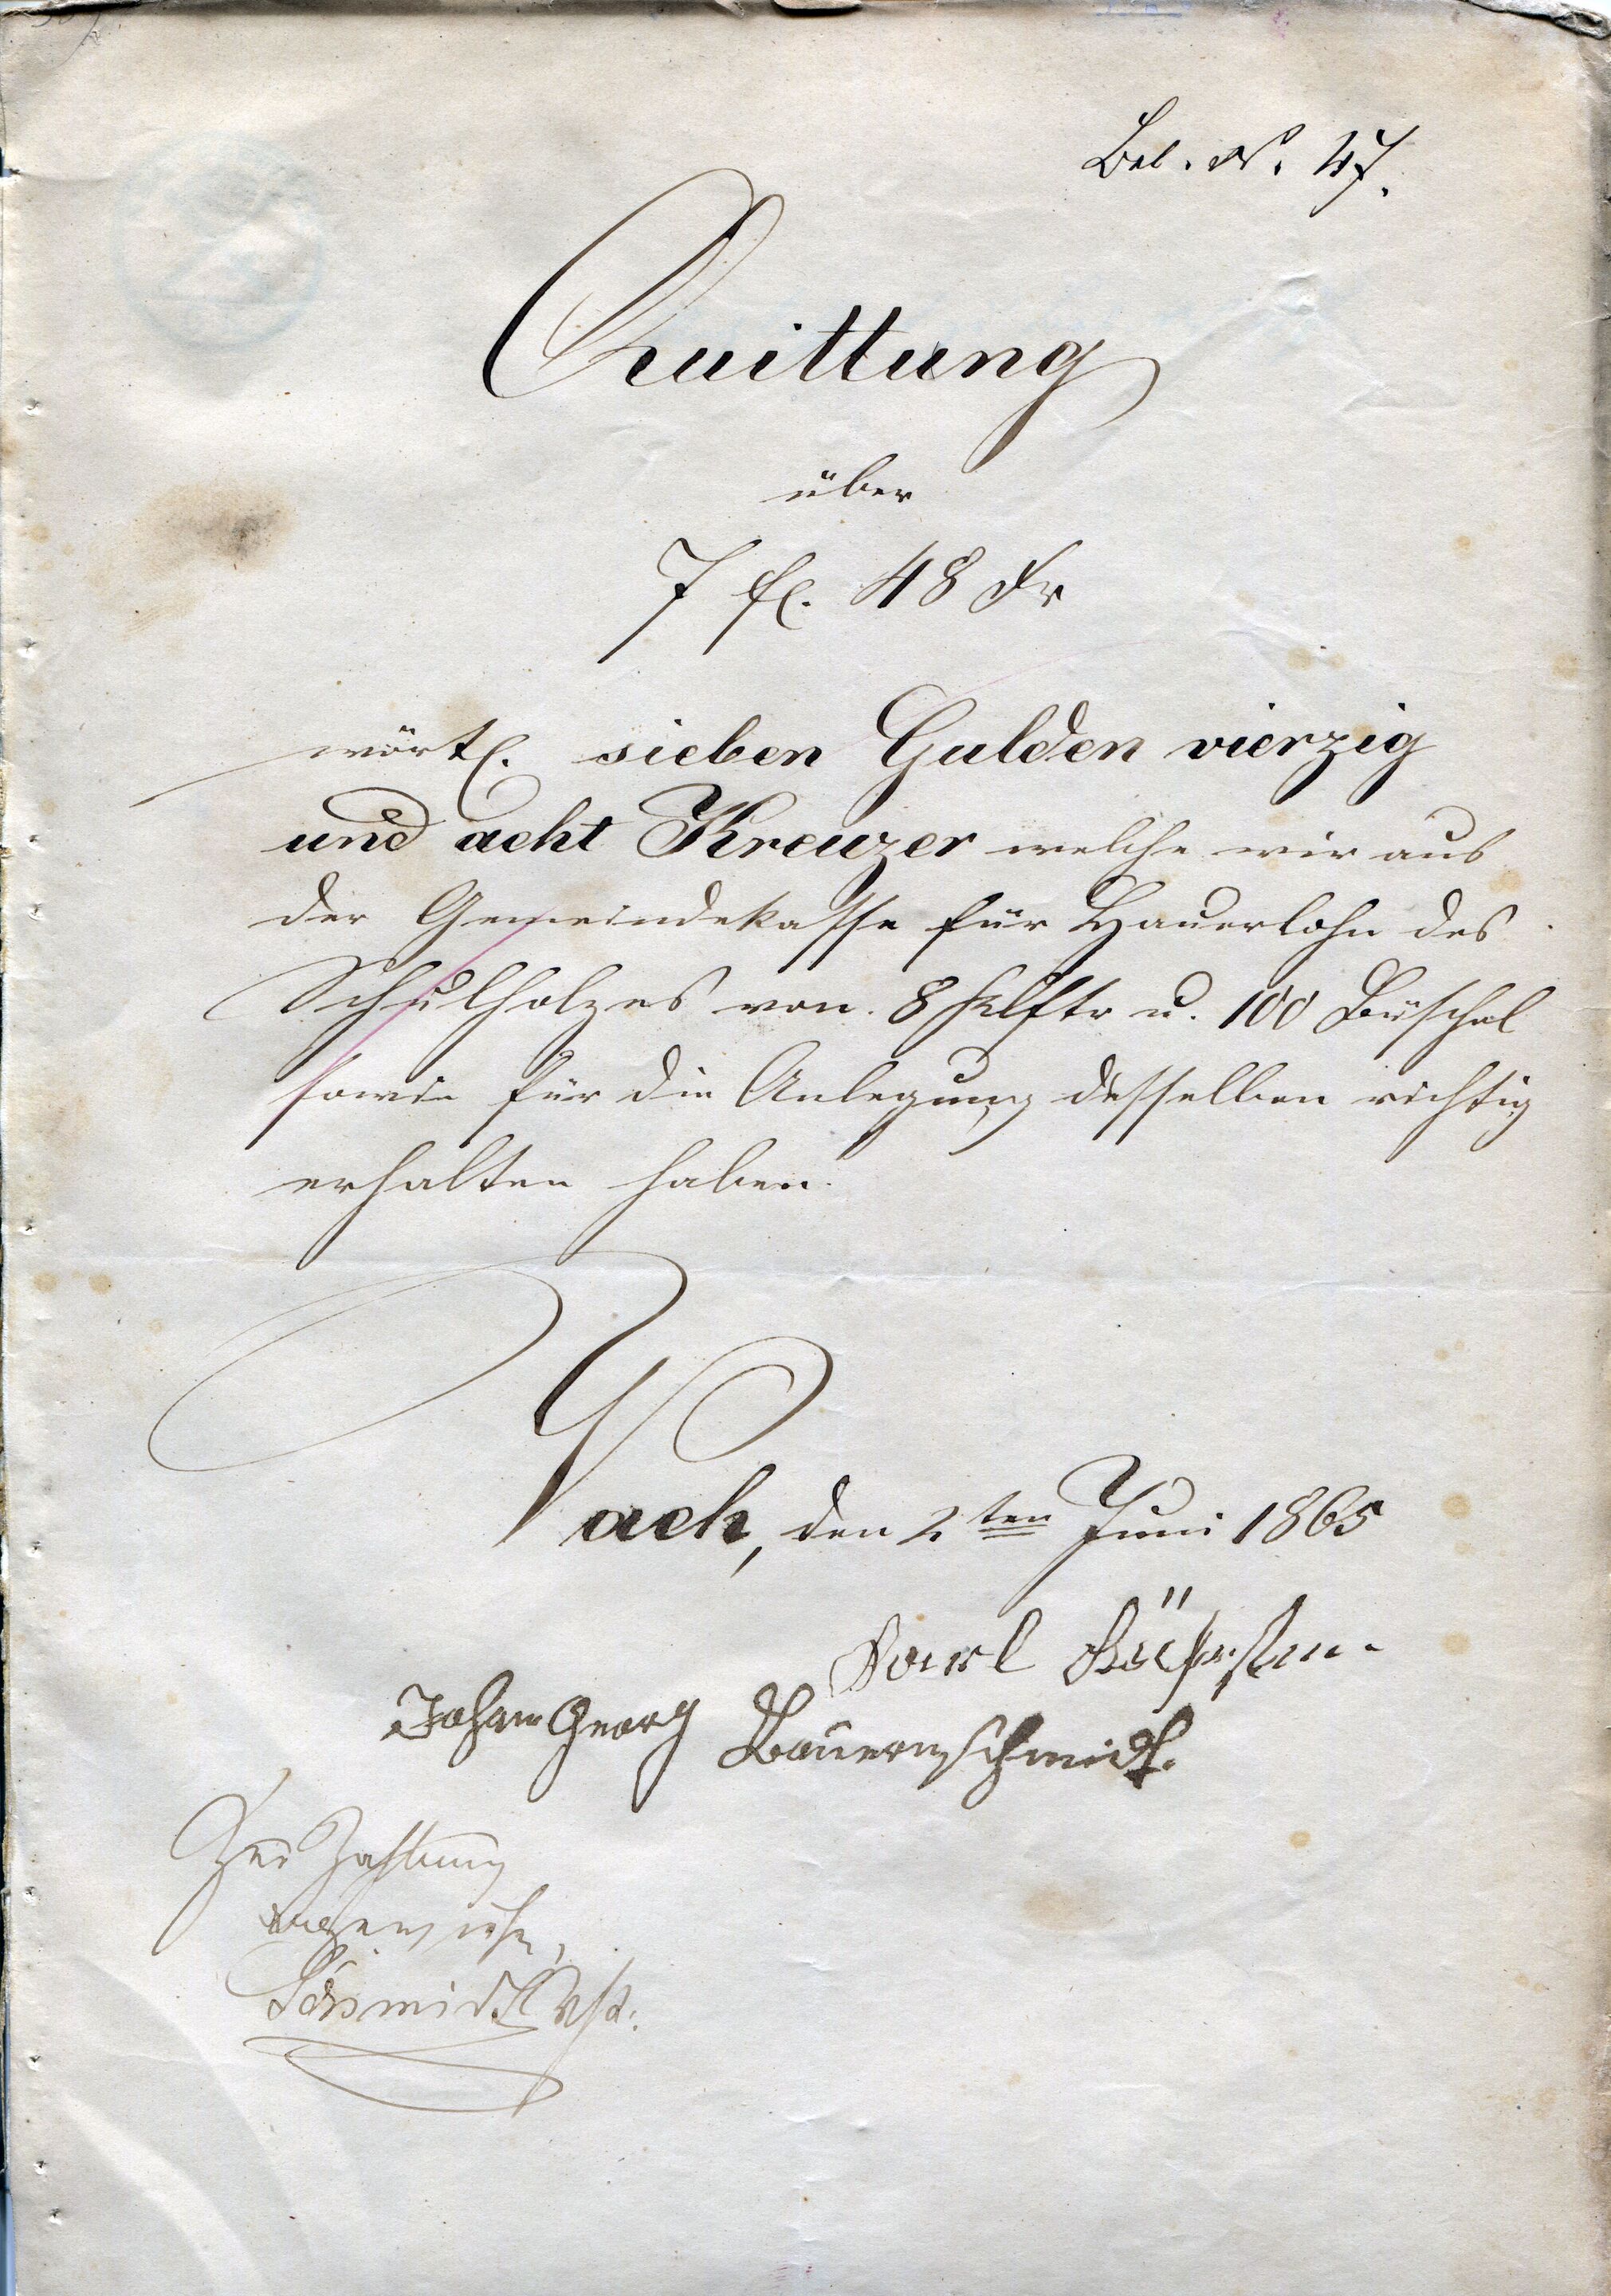 Bel. N. 47.
Quittung
über
7 fl. 48 Kr
wörtl. sieben Gulden vierzig
und acht Kreuzer welche wir aus
der Gemeindekasse für Hauerlohn des
Schulholzes von 8 Klftr u. 100 Büschel
sowie für die Anlegung desselben richtig
erhalten haben.
Vach, den 2ten Juni 1865
Paul
Johann Georg Bauernschmidt.
Zur Zahlung
angewiesen,
Schmidt Vst.